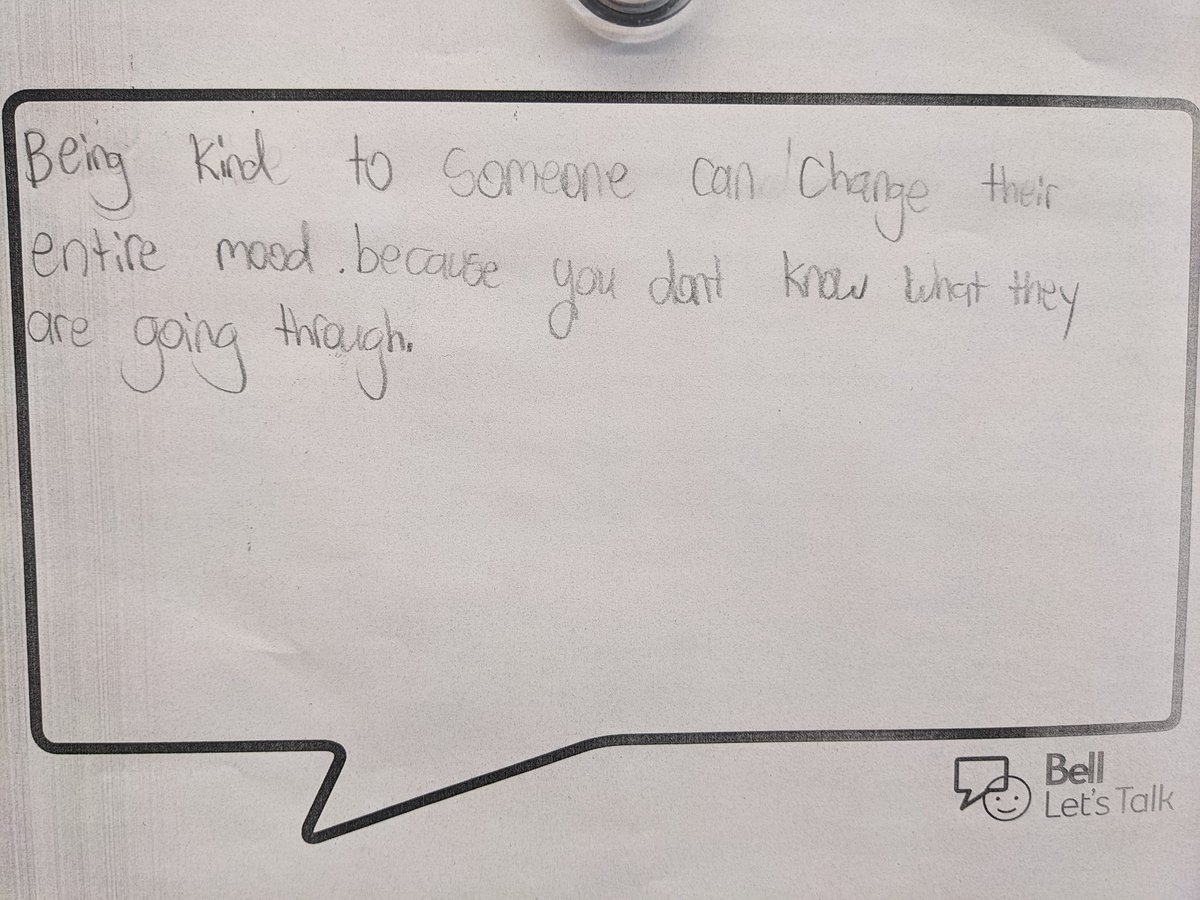 Being kind to Someone can Change their
entire mood. because you dont know what they
are going through.
Bell
Let's Talk